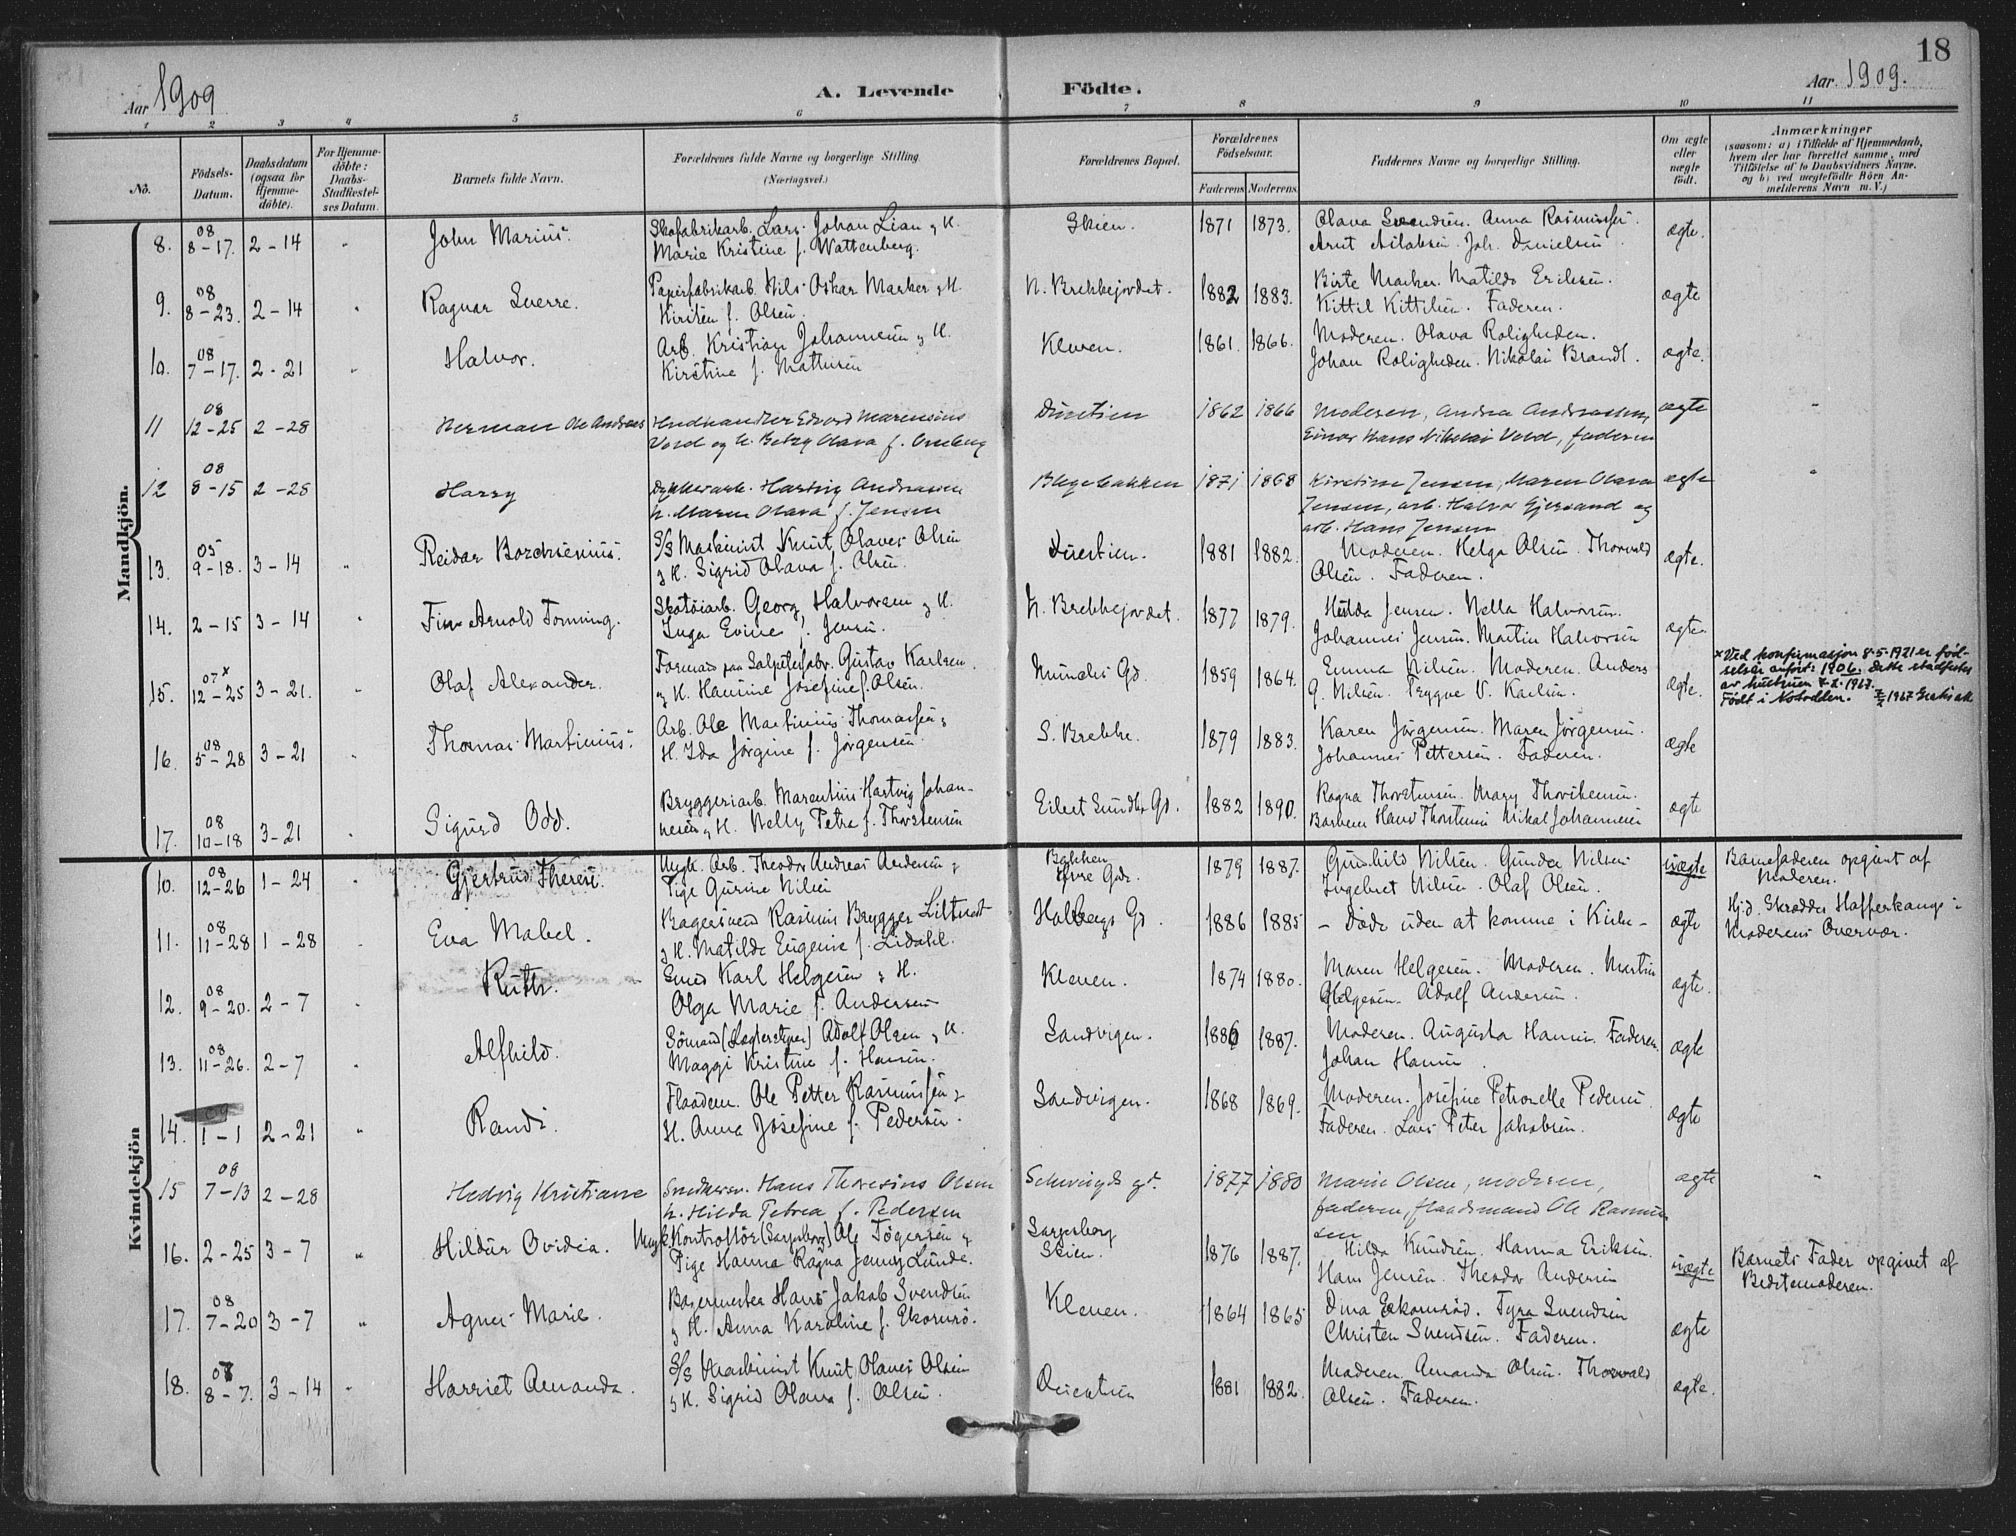 18
Aar 1909
A. Levende Födte.
Aar 1909.
1 2 3 4 5 6 7 8 9 10 11
No.
Födsels-Datum.
Daabsdatum (ogsaa for Hjemme-döbte).
For Hjemme-döbte: Daabs-Stadfæstel-ses Datum.
Barnets fulde Navn.
Forældrenes fulde Navne og borgerlige Stilling. (Næringsvei.)
Forældrenes Bopæl.
Forældrenes Födselsaar.
Faderens Moderens
Faddernes Navne og borgerlige Stilling.
Om ægte eller uægte födt.
Anmærkninger
(saasom: a) i Tilfælde af Hjemmedaab,
hvem der har forrettet samme, med
Tilföielse af to Daabsvidners Navne.
og b) ved uægtefödte Börn An-
melderens Navn m. V.)
Mandkjön.
8. 08 8-17. 2-14 " John Marius. Skofabrikarb. Lars Johan Lian & H.
Marie Kristine f. Wattenberg. Skien. 1871 1873. Olava Svendsen. Anna Rasmussen.
Arnt Aslaksen. Joh. Danielsen. ægte.
9. 08 8-23. 2-14 " Ragnar Sverre. Papirfabrikarb. Nils Oskar Marker & H.
Kirsten f. Olsen. N. Brekkejordet. 1882 1883. Birte Marker. Matilde Eriksen.
Kittil Kittilsen. Faderen. ægte
10. 08 7-17. 2-21 " Halvor. Arb. Kristian Johannesen & H.
Kirstine f. Mathisen Kleven. 1861. 1866. Moderen. Olava Roligheden.
Johan Roligheden. Nikolai Brandt. ægte.
11 08 12-25 2-28 Herman Ole Andreas Hudhandler Edvard Marensius
Vold og h. Betzy Olava f. Duestien 1862 1866 Moderen, Andrea Andreassen,
Einar Hans Nikolai Vold, faderen ægte "
12 08 8-15 2-28 Harry arb. Hartvig Andreasen
h. Maren Olava f. Jensen Blegebakken 1871 1868 Kirstine Jensen, Maren Olava
Jensen, arb. Halvor Gjersand og
arb. Hans Jensen ægte "
13. 05 9-18. 3-14 " Reidar Borchsenius. S/S Maskinist Knut Olaves Olsen
& H. Sigrid Olava f. Olsen. Duestien. 1881 1882. Moderen. Helga Olsen. Thorvald
Olsen. Faderen. ægte.
14. 2-15 3-14 " Finn Arnold Tonning. Skotöiarb. Georg Halvorsen & H.
Inga Evine f. Jensen. N. Brekkejordet. 1877 1879. Hilda Jensen. Nella Halvorsen.
Johannes Jensen. Martin Halvorsen ægte.
15. 07x 12-25 3-21. " Olaf Alexander. Formand paa Salpeterfabr. Gustav Karlsen
& H. Hanine Josefine f. Olsen. Gd. 1859 1864. Emma Nilsen. Moderen. Anders
G. Nilsen. Trygve V. Karlsen. ægte.
x Ved konfirmasjon 8-5-1921 er fød-
selsår anført: 1906. Dette stadfestes
av 1967.
Født i Notodden. 1967
16. 08 5-28 3-21 " Thomas Martinius. Arb. Ole Martinius Thomassen &
H. Ida Jörgine f. Jörgensen. S. Brekke. 1879 1883. Karen Jörgensen. Maren Jörgensen.
Johannes Pettersen. Faderen. ægte
17. 08 10-18 3-21 " Sigurd Odd. Bryggeriarb. Marentius Hartvig Johan-
nesen & H. Nelly Petra f. Thorstensen Eilert Sundts Gd. 1882 1890. Ragna Thorstensen. Mary Thorstensen.
Hans Thorstensen Mikal Johannesen ægte
Kvindekjön
10. 08 12-26 1-24 " Gjertrud Therese. Ungk. Arb. Theodor Andreas Andersen &
Pige Gurine Nilsen Bakken
Övre Gd. 1879 1887. Gunhild Nilsen. Gunda Nilsen.
Ingebret Nilsen. Olaf Olsen. uægte Barnefaderen opgivet af
Moderen.
11. 08 11-28 1-28 Eva Mabel. Bagersvend Rasmus Brygger
& H. Matilde Eugenie f. Lidahl. Holbergs Gd 1886 1885 - Döde uden at komme i Kirke - ægte Hj.d. Skrædder i
Moderens Overvær.
12. 08 9-20. 2-7 " Ruth. Smed Karl Helgesen & H.
Olga Marie f. Andersen Kleven. 1874 1880. Maren Helgesen. Moderen. Martin
Helgesen. Adolf Andersen. ægte.
13. 08 11-26. 2-7 " Alfhild. Sömand Adolf Olsen & H.
Maggi Kristine f. Hansen. Sandvigen. 1886 1887. Moderen. Augusta Hansen. Faderen.
Johan Hansen. ægte
14. 09 1-1 2-21 " Randi. Flaadem. Ole Petter Rasmussen &
H. Anna Josefine f. Pedersen. Sandvigen. 1868 1869. Moderen. Josefine Petronelle Pedersen
Faderen. Lars Peter Jakobsen. ægte
15 08 7-13 2-28 Hedvig Kristiane Snedkersv. Hans Thorsius Olsen
h. Hilda Petrea f. Pedersen gd. 1877 1880 Marie Olsen, moderen,
faderen, flaadsmand Ole Rasmus-
sen ægte "
16. 2-25 3-7 " Hildur Ovidia. Ungk. Kontrollör (Sarpsborg) Ole Tögersen &
Pige Hanna Ragna Jenny Lunde. Sarpsborg
Skien. 1876 1887. Hilda Knudsen. Hanna Eriksen.
Hans Jensen. Theodor Andersen uægte Barnets Fader opgivet af
Bedstemoderen.
17. 08 7-20 3-7 " Agnes Marie. Bagermester Hans Jakob Svendsen
& H. Anna Karoline f. Ekornrö. Kleven. 1864 1865 Dina Ekornröd. Tyra Svendsen
Christen Svendsen. Faderen. ægte
18. 07 8-7. 3-14 " Harriet Amanda. S/S Maskinist Knut Olaves Olsen
& H. Sigrid Olava f. Olsen. Duestien 1881 1882. Moderen. Amanda Olsen. Thorvald
Olsen. Faderen. ægte.